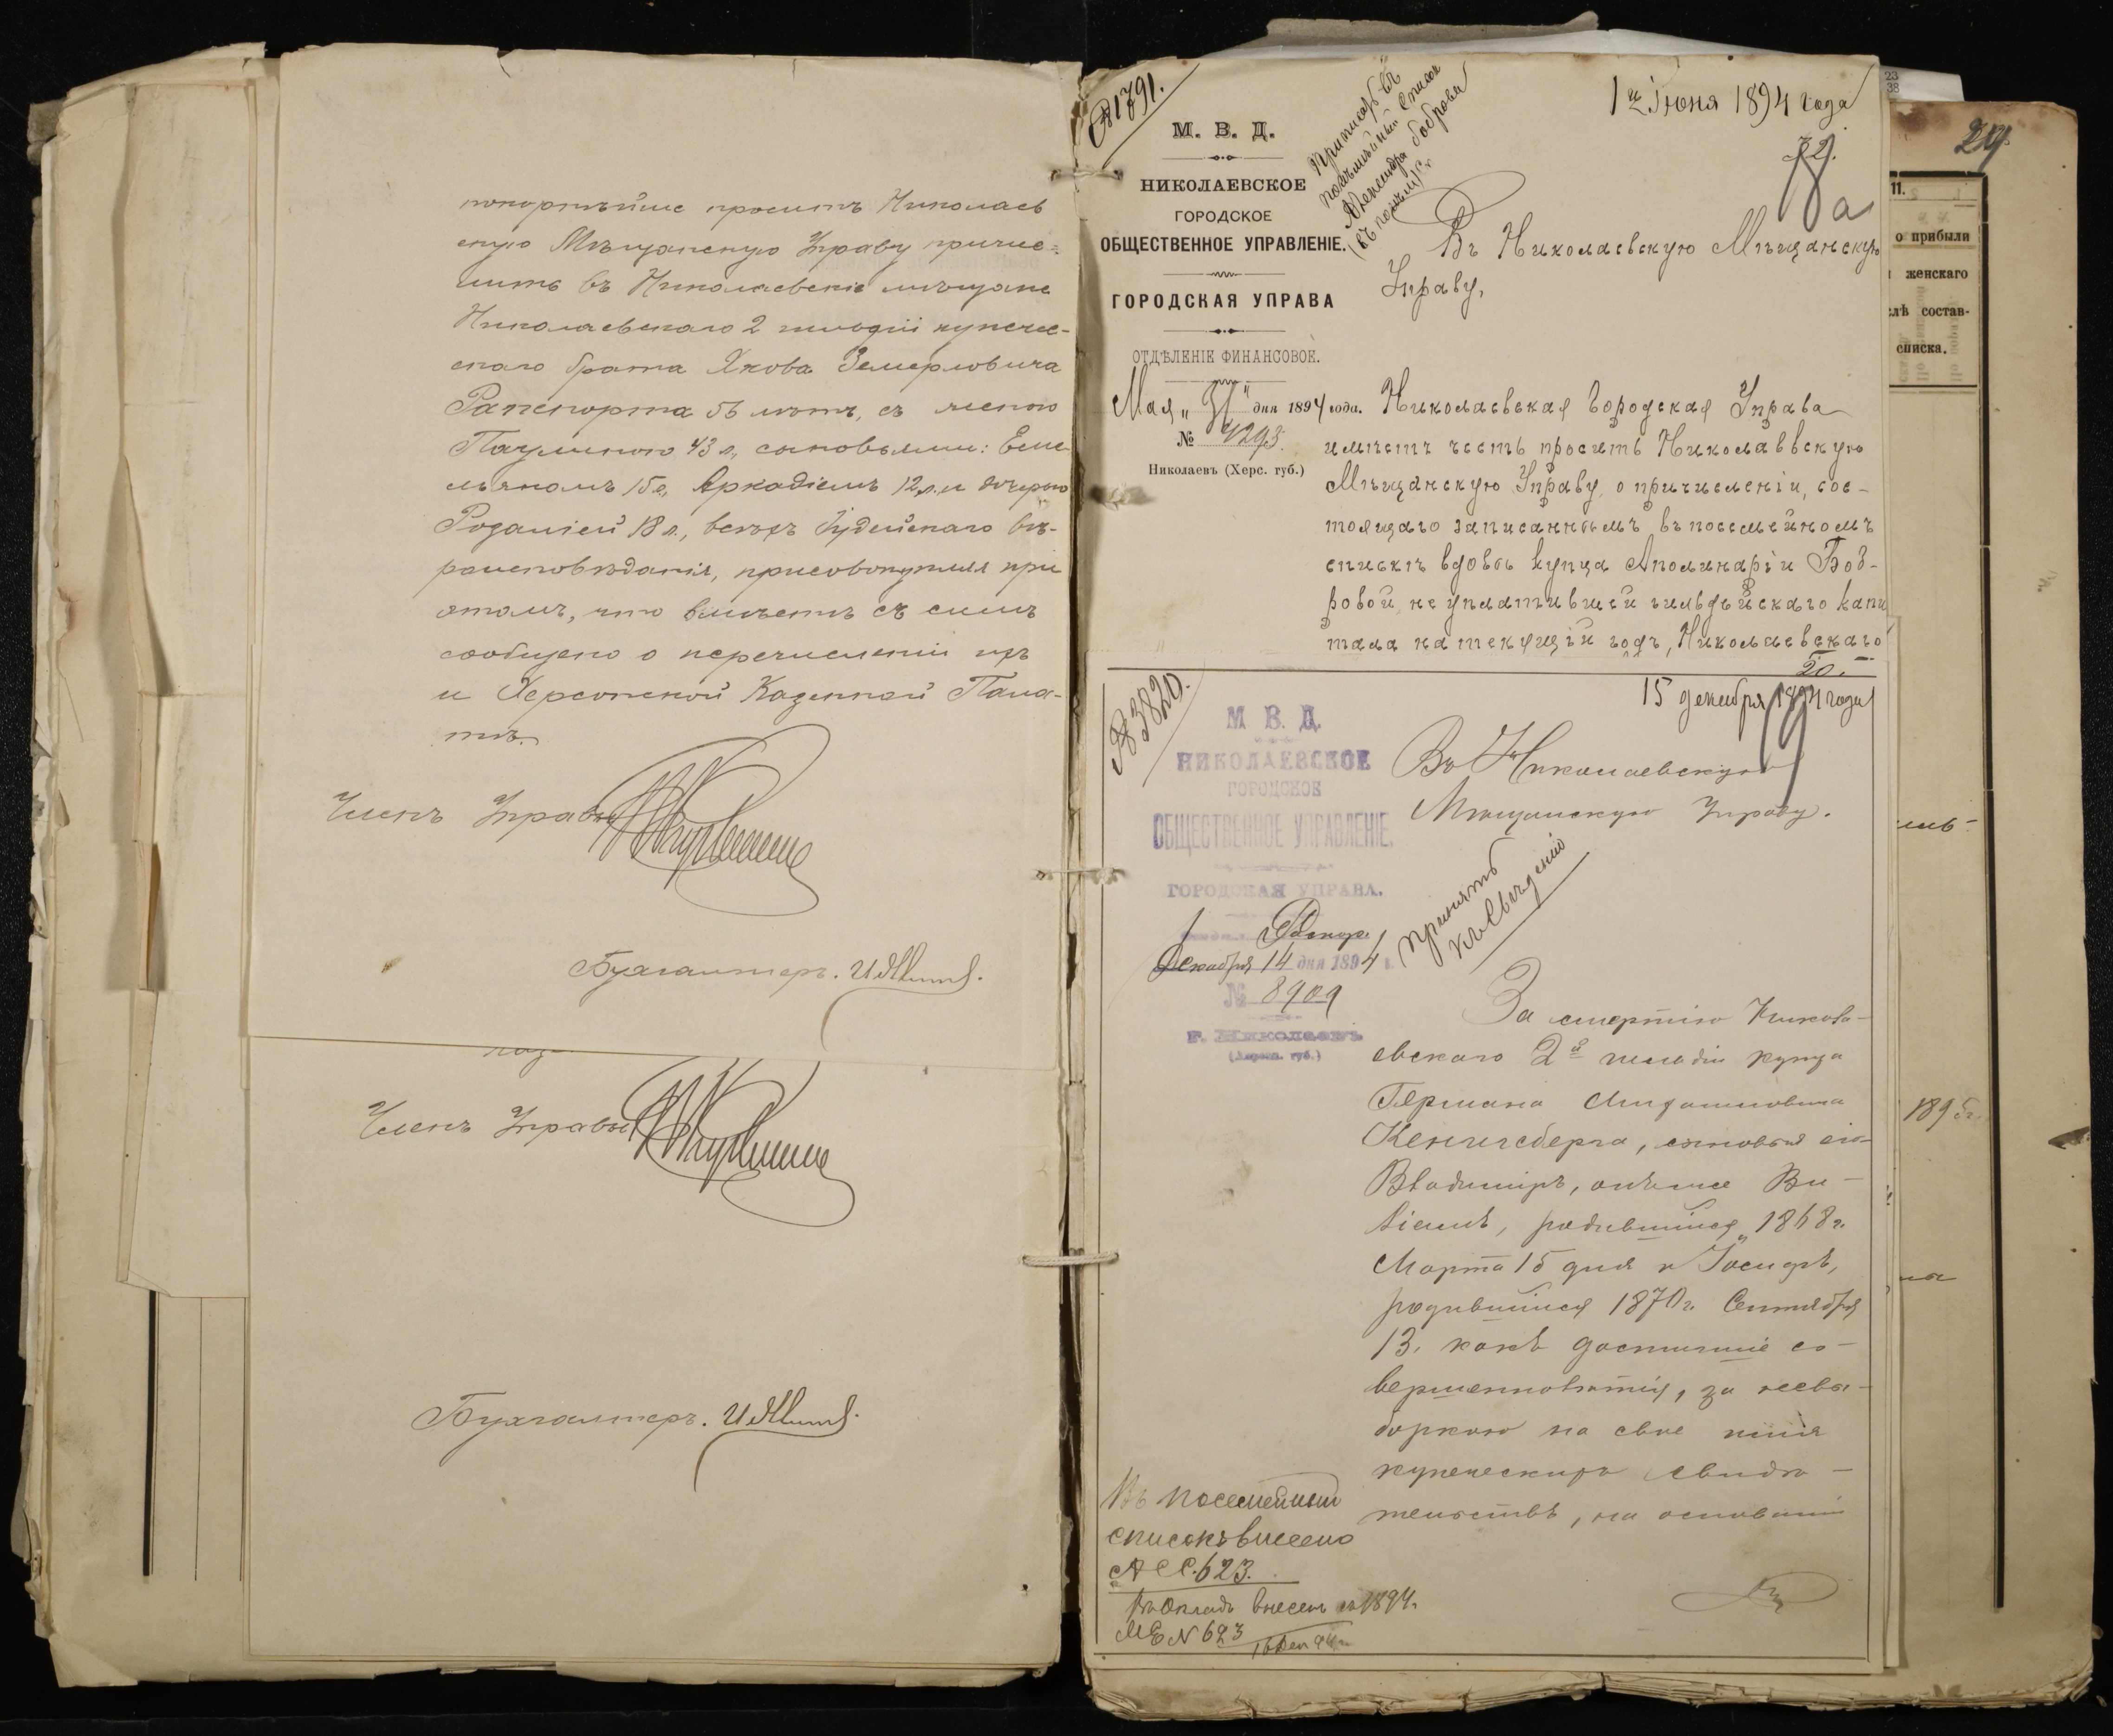 покорнѣйше проситъ Николаев
скую Мѣщанскую Управу причис=
лить въ Николаевскіе мѣщане
Николаевскаго 2 гильдіи купечес-
скаго брата Якова Земерловича
Рапспорта 56 лѣтъ, съ женою
Паулиною 43 л., сыновьями: Еме
льяномъ 15 л, Аркадіемъ 12 л. и дочерью
Розаліей 18 л., всѣхъ Іудейскаго вѣ-
роисповѣданія, присовокупляя при
этомъ, что вмѣстѣ съ симъ
сообщено о перечисленіи ихъ
и Херсонской Казенной Пала-
тѣ.
Членъ Управы
Бухгалтеръ.
Членъ Управы
Бухгалтеръ.
№ 1791.
1го Іюня 1894 года
М. В. Д.
НИКОЛАЕВСКОЕ
ГОРОДСКОЕ
ОБЩЕСТВЕННОЕ УПРАВЛЕНІЕ.
ГОРОДСКАЯ УПРАВА
ОТДѢЛЕНІЕ ФИНАНСОВОЕ.
Мая „31" дня 1894 года.
№ 4293.
Николаевъ (Херс. губ.)
Приписать въ
посемейный списокъ
Александра Бодрова
18а
Въ Николаевскую Мѣщанскую
Управу,
Николаевская Городская Управа
имѣетъ честь просить Николаевскую
Мѣщанскую Управу о причисленіи, сос-
тоящаго записаннымъ въ посемейномъ
спискѣ вдовы купца Аполинаріи Бод-
ровой, неуплатившей гильдейскаго капи
тала на текущій годъ, Николаевскаго
20.
№ 3820.
15 декабря 1894 года
19
М. В. Д.
НИКОЛАЕВСКОЕ
ГОРОДСКОЕ
ОБЩЕСТВЕННОЕ УПРАВЛЕНІЕ.
ГОРОДСКАЯ УПРАВА.
Декабря 14 дня 1894 г.
№ 8909
г. Николаевъ
(Херсон. губ.)
Въ Николаевскую
Мѣщанскую Управу.
Принять
къ свѣдѣнію
За смертію Никола-
евскаго 2й гильдіи купца
Германа
Кенигсберга, сыновья его
Владиміръ, онъ же Ви-
ліамъ, родившійся 1868 г.
Марта 15 дня и Іосифъ,
родившійся 1870 г. Сентября
13. какъ достигшіе со-
вершеннолѣтія, за невы-
боркою на свое имя
купеческихъ свидѣ-
тельствъ, на основаніи
Въ посемейный
списокъ внесено
№ 623.
Въ окладъ внесенъ съ 1894.
№ 623 16 Дек 94 г.
24
11.
о прибыли
женскаго
слѣ состав-
списка.
1895 г.